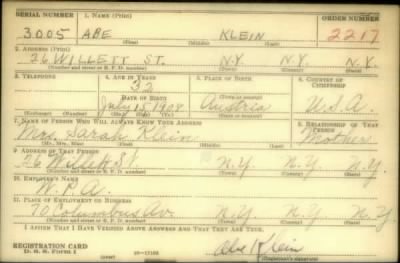 SERIAL NUMBER 1. NAME (Print) ORDER NUMBER
3005 ABE KLEIN 2217
(First) (Middle) (Last)
2. ADDRESS (Print)
26 WILLETT ST. N.Y. N.Y. N.Y.
(Number and street or R. F. D. number) (Town) (County) (State)
3. TELEPHONE 4. AGE IN YEARS 5. PLACE OF BIRTH 6. COUNTRY OF CITIZENSHIP
32
DATE OF BIRTH
July 15 1908 Austria U.S.A.
(Exchange) (Number) (Mo.) (Day) (Yr.) (State or country)
7. NAME OF PERSON WHO WILL ALWAYS KNOW YOUR ADDRESS 8. RELATIONSHIP OF THAT PERSON
Mrs. Sarah Klein Mother
(Mr., Mrs., Miss) (First) (Middle) (Last)
9. ADDRESS OF THAT PERSON
26 Willett St. N.Y. N.Y. N.Y.
(Number and street or R. F. D. number) (Town) (County) (State)
10. EMPLOYER'S NAME
W.P.A.
11. PLACE OF EMPLOYMENT OR BUSINESS
70 Columbus Av. N.Y. N.Y. N.Y.
(Number and street or R. F. D. number) (Town) (County) (State)
I AFFIRM THAT I HAVE VERIFIED ABOVE ANSWERS AND THAT THEY ARE TRUE.
REGISTRATION CARD
D. S. S. Form 1 Abe Klein
(Registrant's signature)